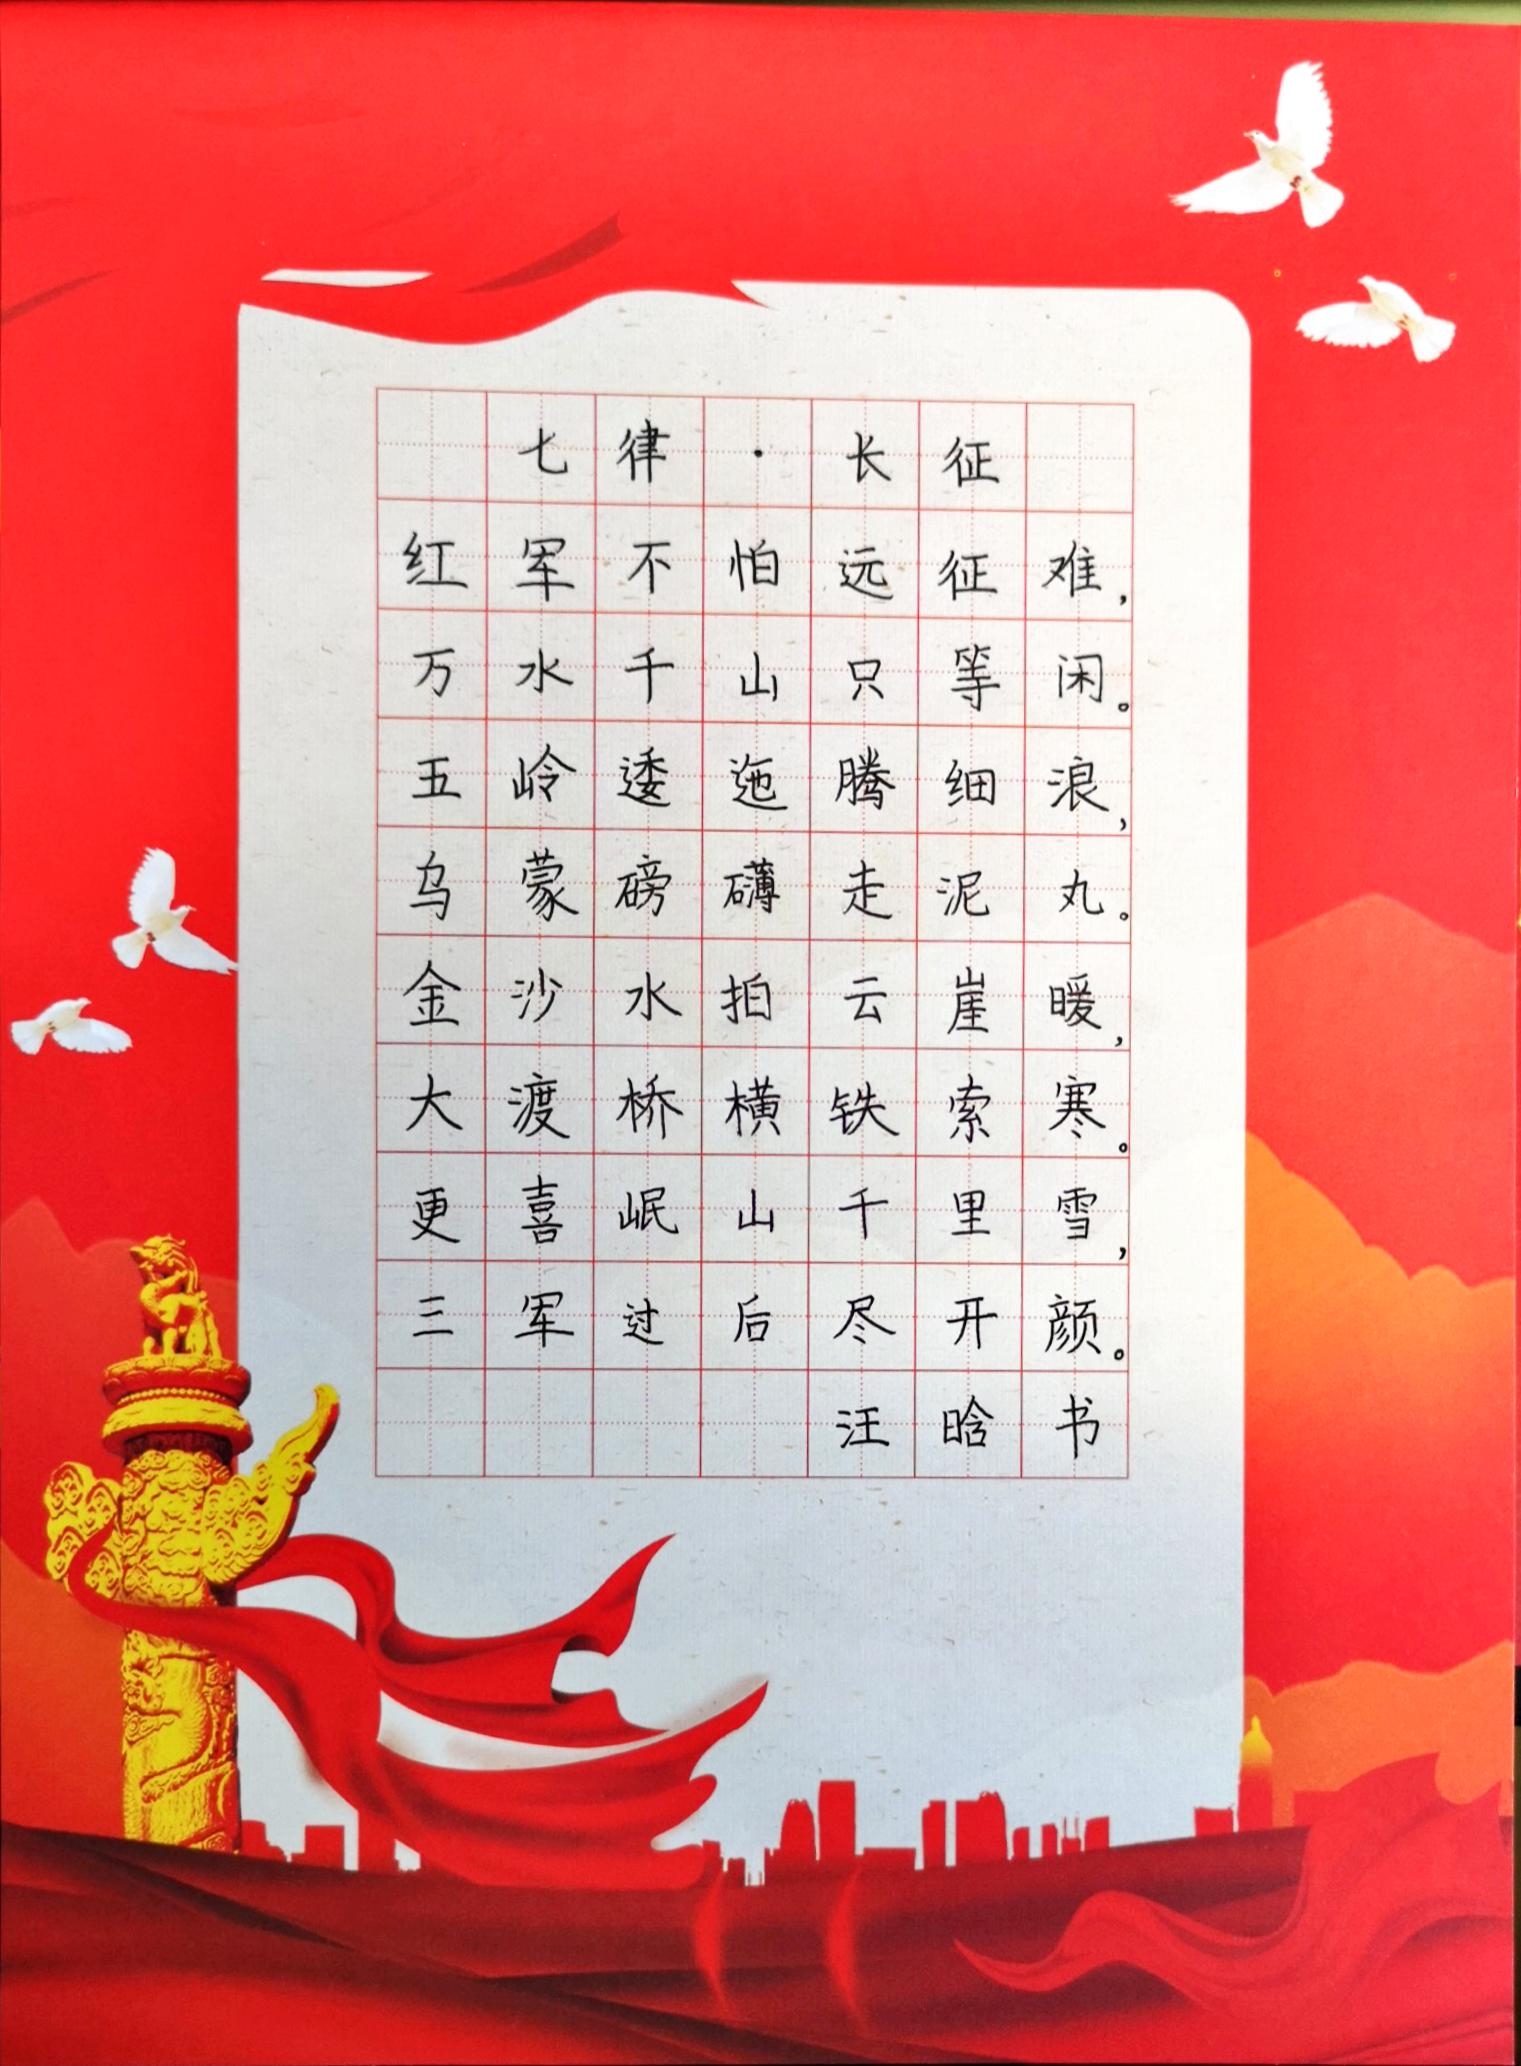 七律·长征
红军不怕远征难，
万水千山只等闲。
五岭逶迤腾细浪，
乌蒙磅礴走泥丸。
金沙水拍云崖暖，
大渡桥横铁索寒。
更喜岷山千里雪，
三军过后尽开颜。
汪晗书